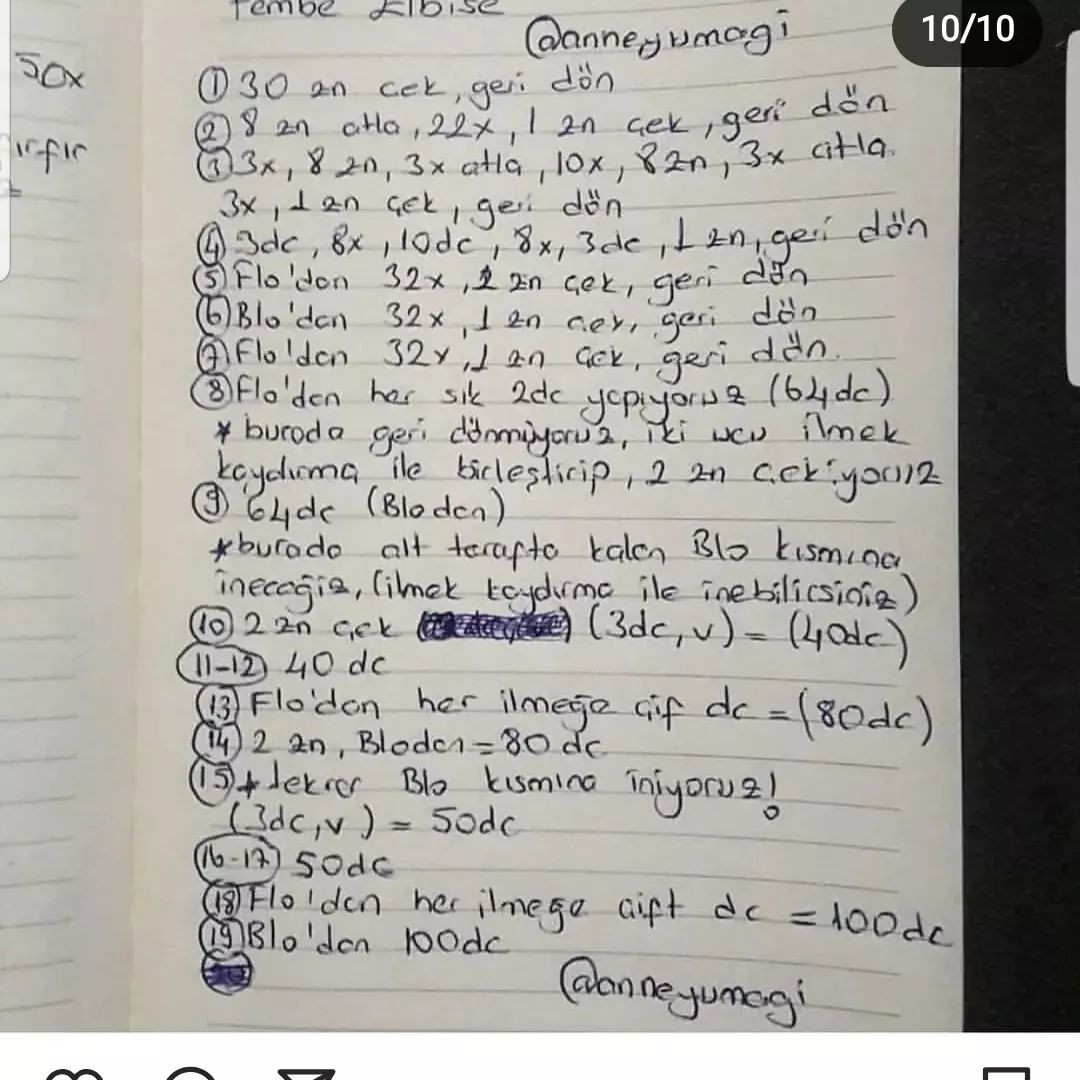 Pembe Elbise
@anneyumagi
10/10
50x
ırfır
① 30 zn cek, geri dön
② 8 zn atla, 22x, 1 zn çek, geri dön
③ 3x, 8 zn, 3x atla, 10x, 8zn, 3x atla.
3x, 1 zn çek, geri dön
④ 3dc, 8x, 10dc, 8x, 3dc, 1 zn, geri dön
⑤ Flo'dan 32x, 1 zn çek, geri dön
⑥ Blo'dan 32x, 1 zn çek, geri dön
⑦ Flo'dan 32x, 1 zn çek, geri dön.
⑧ Flo'den her sık 2dc yapıyoruz (64dc)
* burada geri dönmüyoruz, iki ucu ilmek
kaydırma ile birleştirip, 2 zn çekiyoruz
⑨ 64dc (Blodan)
* burada alt tarafta kalan Blo kısmına
ineceğiz, (ilmek kaydırma ile inebilirsiniz)
⑩ 2 zn çek (3dc, v) = (40dc)
11-12 40 dc
⑬ Flo'dan her ilmeğe çif dc = (80dc)
⑭ 2 zn, Blodan = 80 dc
⑮ * tekrar Blo kısmına iniyoruz!
(3dc, v) = 50dc
16-17 50dc
⑱ Flo'dan her ilmege çift dc = 100dc
⑲ Blo'dan 100dc
@anneyumagi